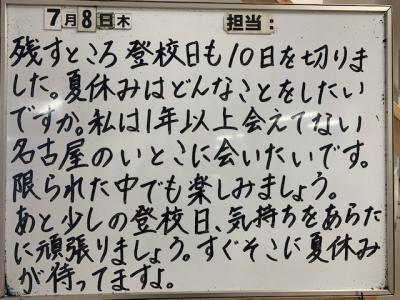 7月8日木 担当:
残すところ登校日も10日を切りま
した。夏休みはどんなことをしたい
ですか。私は1年以上会えてない
名古屋のいとこに会いたいです。
限られた中でも楽しみましょう。
あと少しの登校日、気持ちをあらた
に頑張りましょう。すぐそこに夏休み
が待ってますよ。